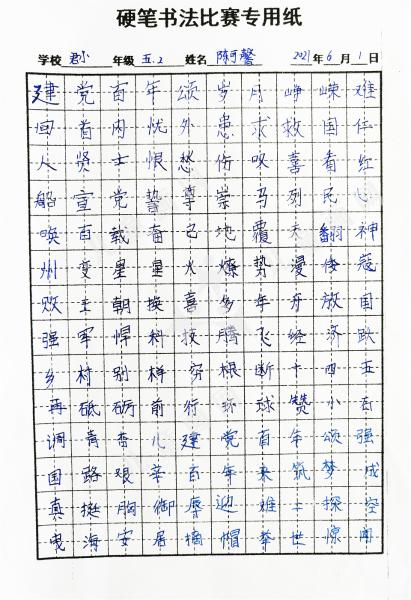 硬笔书法比赛专用纸
学校 君小 年级 五.2 姓名 陈可馨 2021年6月1日
建党百年颂岁月峥嵘难
回首内忧外患求救国任
人贤士恨愁伤叹喜看红
船宣党挚尊崇马列民心
唤百载奋己地覆天翻神
州变星星火燎势漫倭寇
败王朝换喜多年开放国
强军悍科技腾飞经济跃
乡村别样穷根断十四五
再砥砺前行环球赞小百
调青杏儿建党百年颂强
国路艰辛百年来筑梦成
真挺胸御辱迎难上探空
曳海安居摘帽举世惊闻